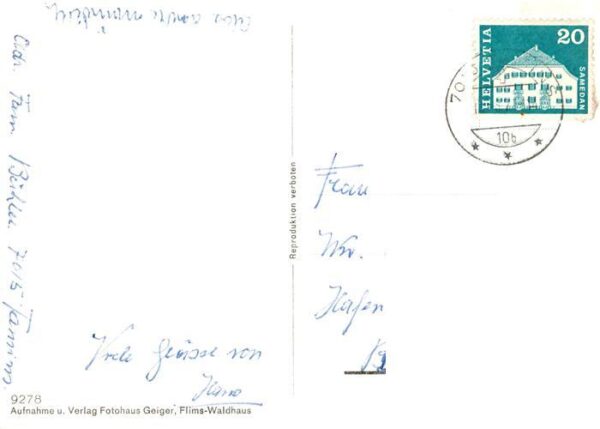 HELVETIA
20
SAMEDAN
70
10b
Reproduktion verboten
Frau
Ww.
Hafen
Viele Grüsse von
Hans
Adr. Fam. 7015 Tamins
alles andere mündlich
9278
Aufnahme u. Verlag Fotohaus Geiger, Flims-Waldhaus